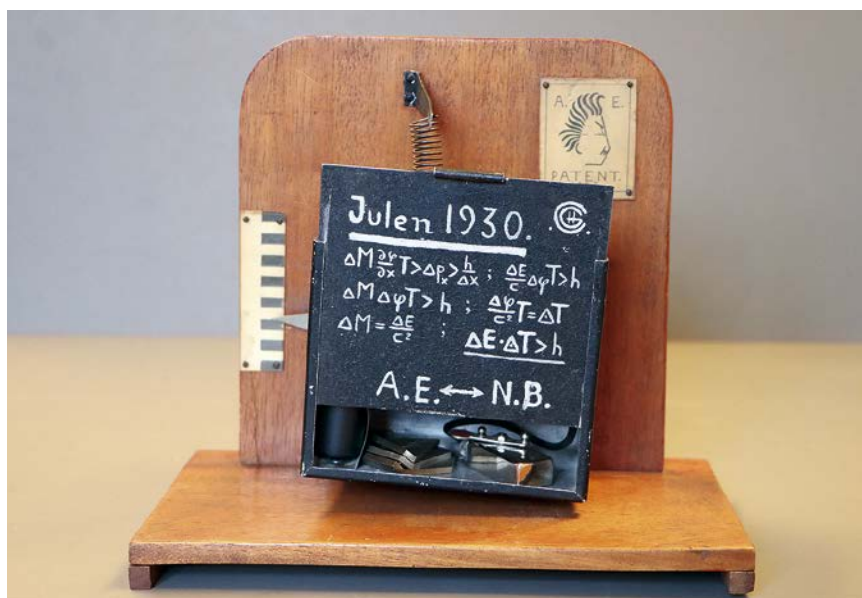 A. E.
PATENT.
Julen 1930.
ΔM ∂φ/∂x T > Δpₓ > h/Δx ; ΔE/c ΔφT > h
ΔM ΔφT > h ; Δφ/c² T = ΔT
ΔM = ΔE/c² ; ΔE·ΔT > h
A.E. ↔ N.B.